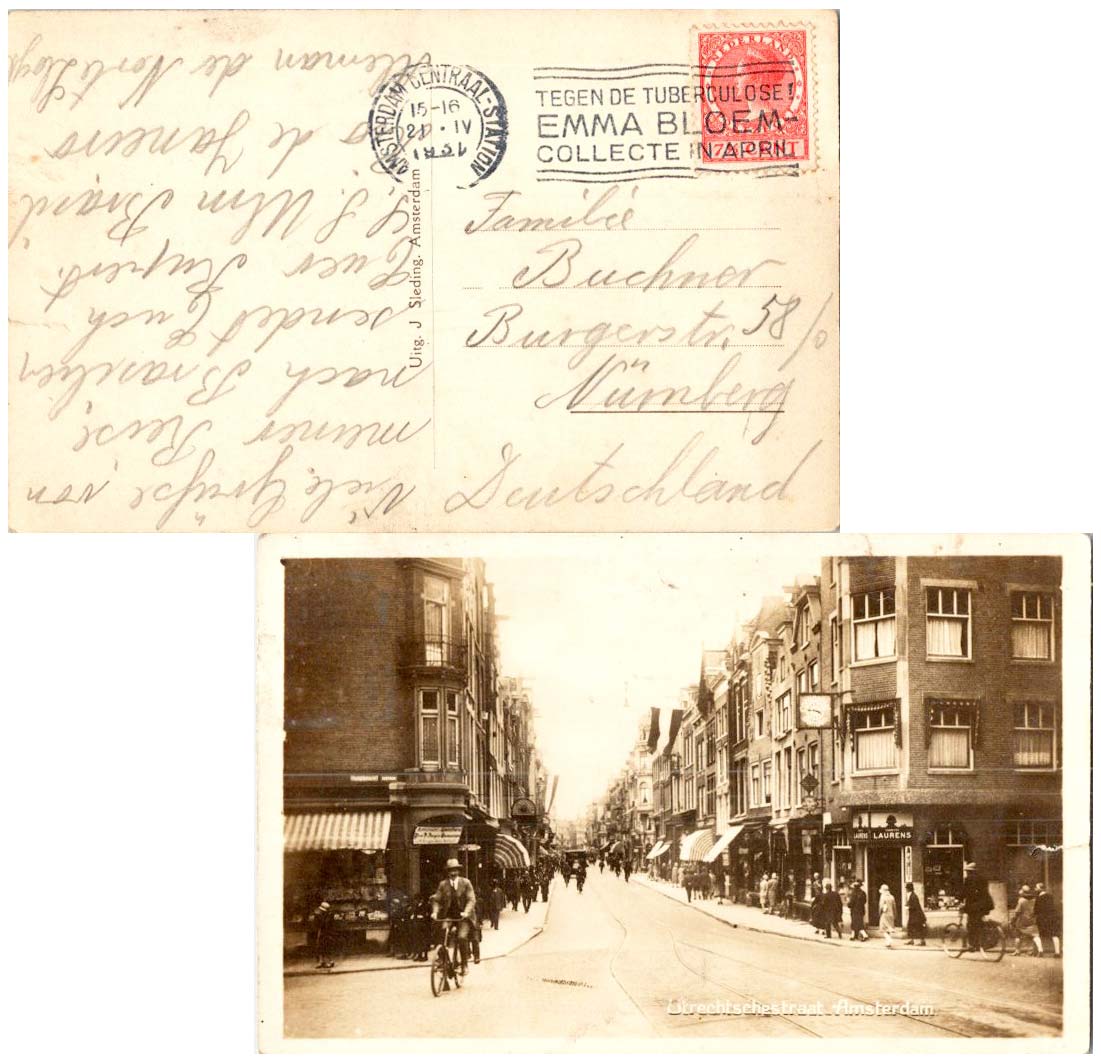 AMSTERDAM CENTRAAL-STATION
15-16
21 · IV
TEGEN DE TUBERCULOSE!
EMMA BLOEM-
COLLECTE IN APRIL
NEDERLAND
7½ CENT
Uitg. J Sleding. Amsterdam
Familie
Buchner
Burgerstr. 58/0
Nürnberg
Deutschland
Viele Grüße von
meiner Reise
nach Brasilien
sendet Euch
Euer Rupert.
S.S.
de Janeiro
de Nort
LAURENS
LAURENS
Utrechtschestraat Amsterdam